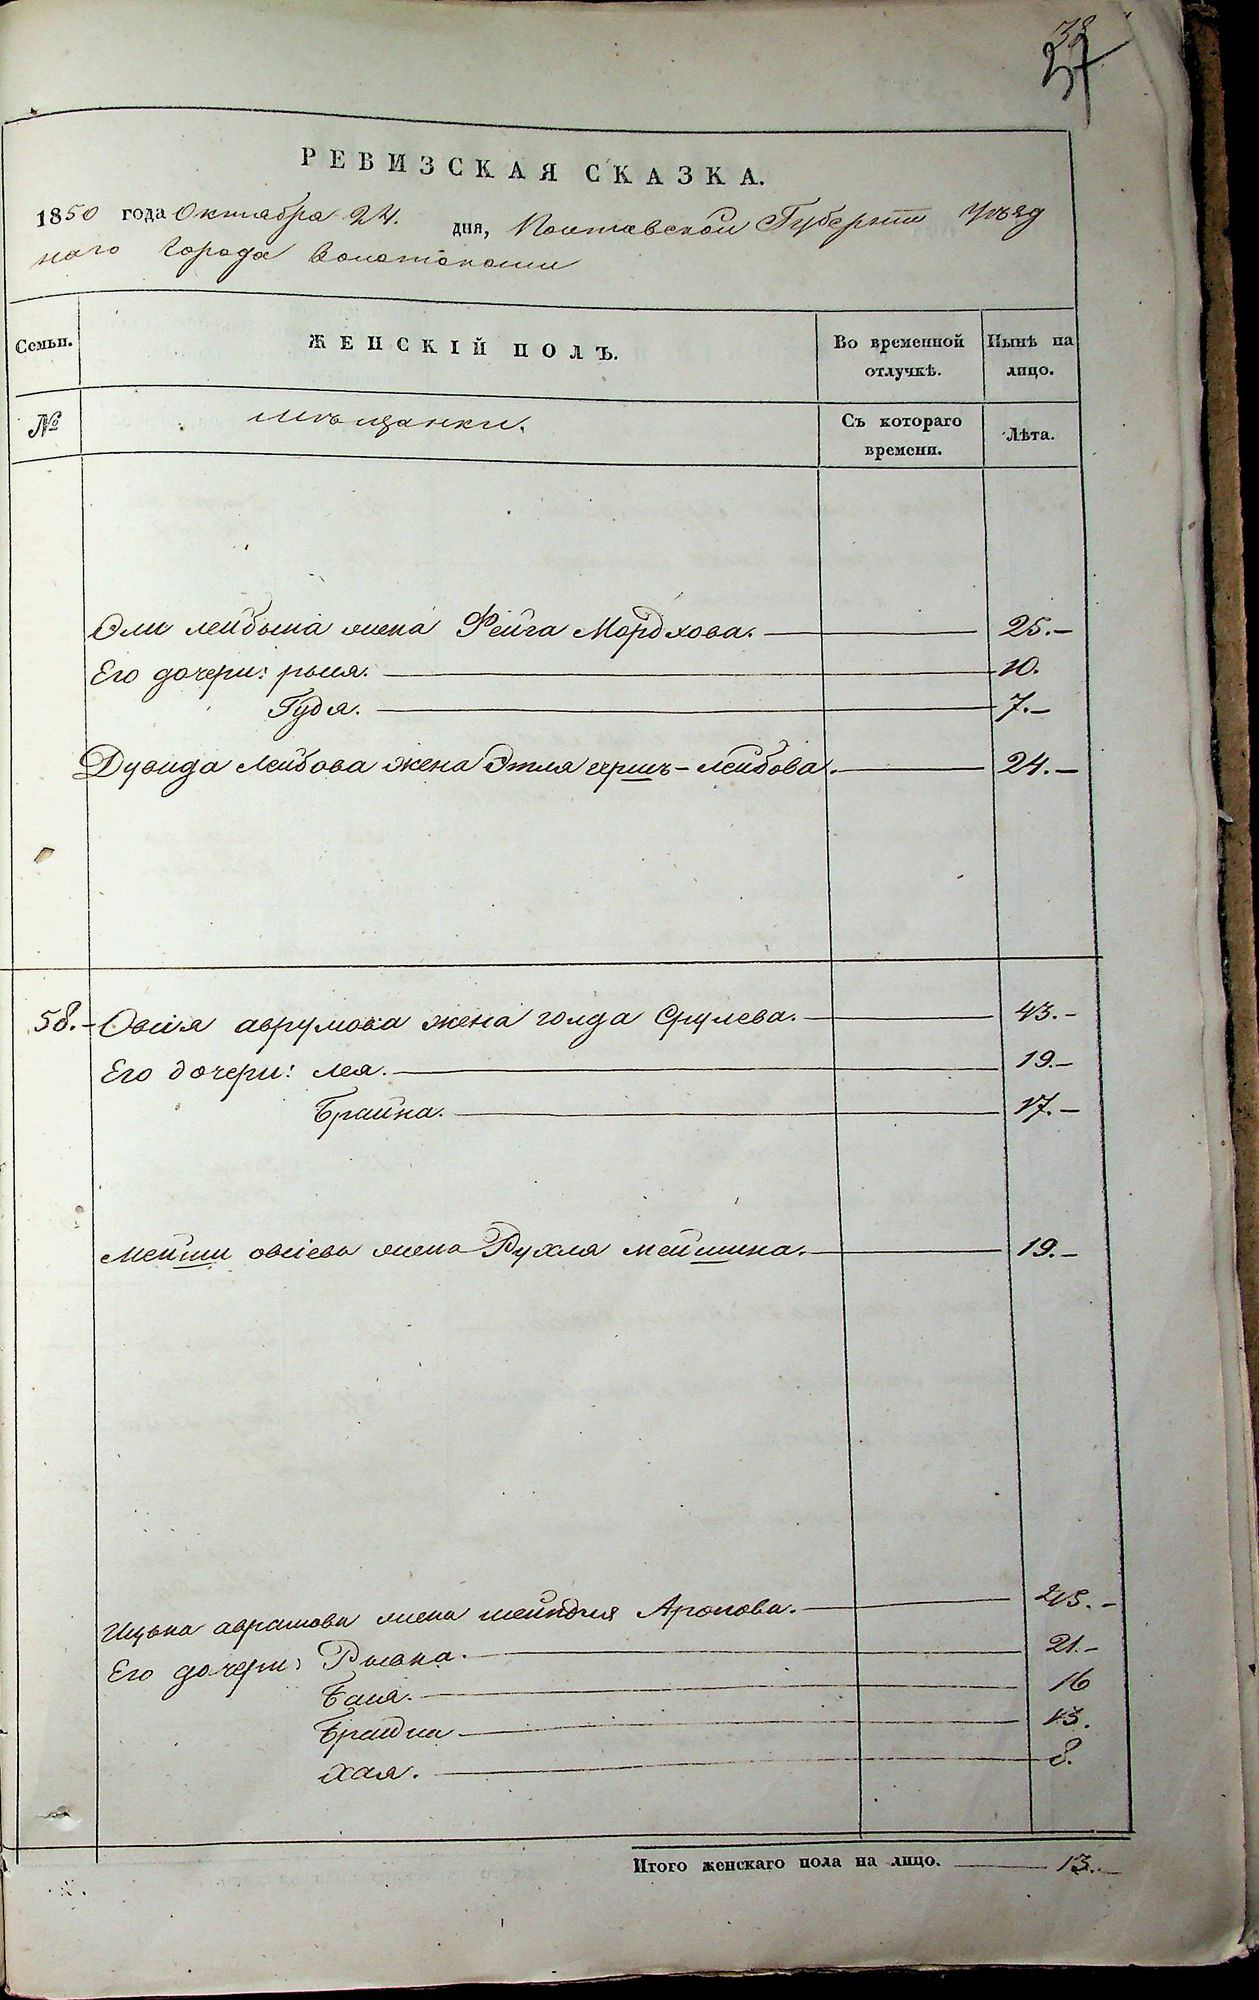 38
37
РЕВИЗСКАЯ СКАЗКА.
1850 года Октября 24. дня, Полтавской Губернии Уѣзд
наго Города Золотоноши
Семьи. ЖЕНСКІЙ ПОЛЪ. Во временной отлучкѣ. Нынѣ на лицо.
№ Мѣщанки. Съ котораго времени. Лѣта.
Эли лейбына жена Фейга Мордхова. 25.
Его дочери: рыся. 10.
Гудя. 7.
Дувида Лейбова жена Этля гершъ-лейбова. 24.
58. Овсія аврумова жена голда Срулева. 43.
Его дочери: лея. 19.
Брайна. 17.
Мейши овсіева жена Рухля мейшина. 19.
Ицька аврамова жена шейндля Аронова. 45.
Его дочери: Рывка. 21.
Бася. 16
13.
хая. 8.
Итого женскаго пола на лицо. 13.